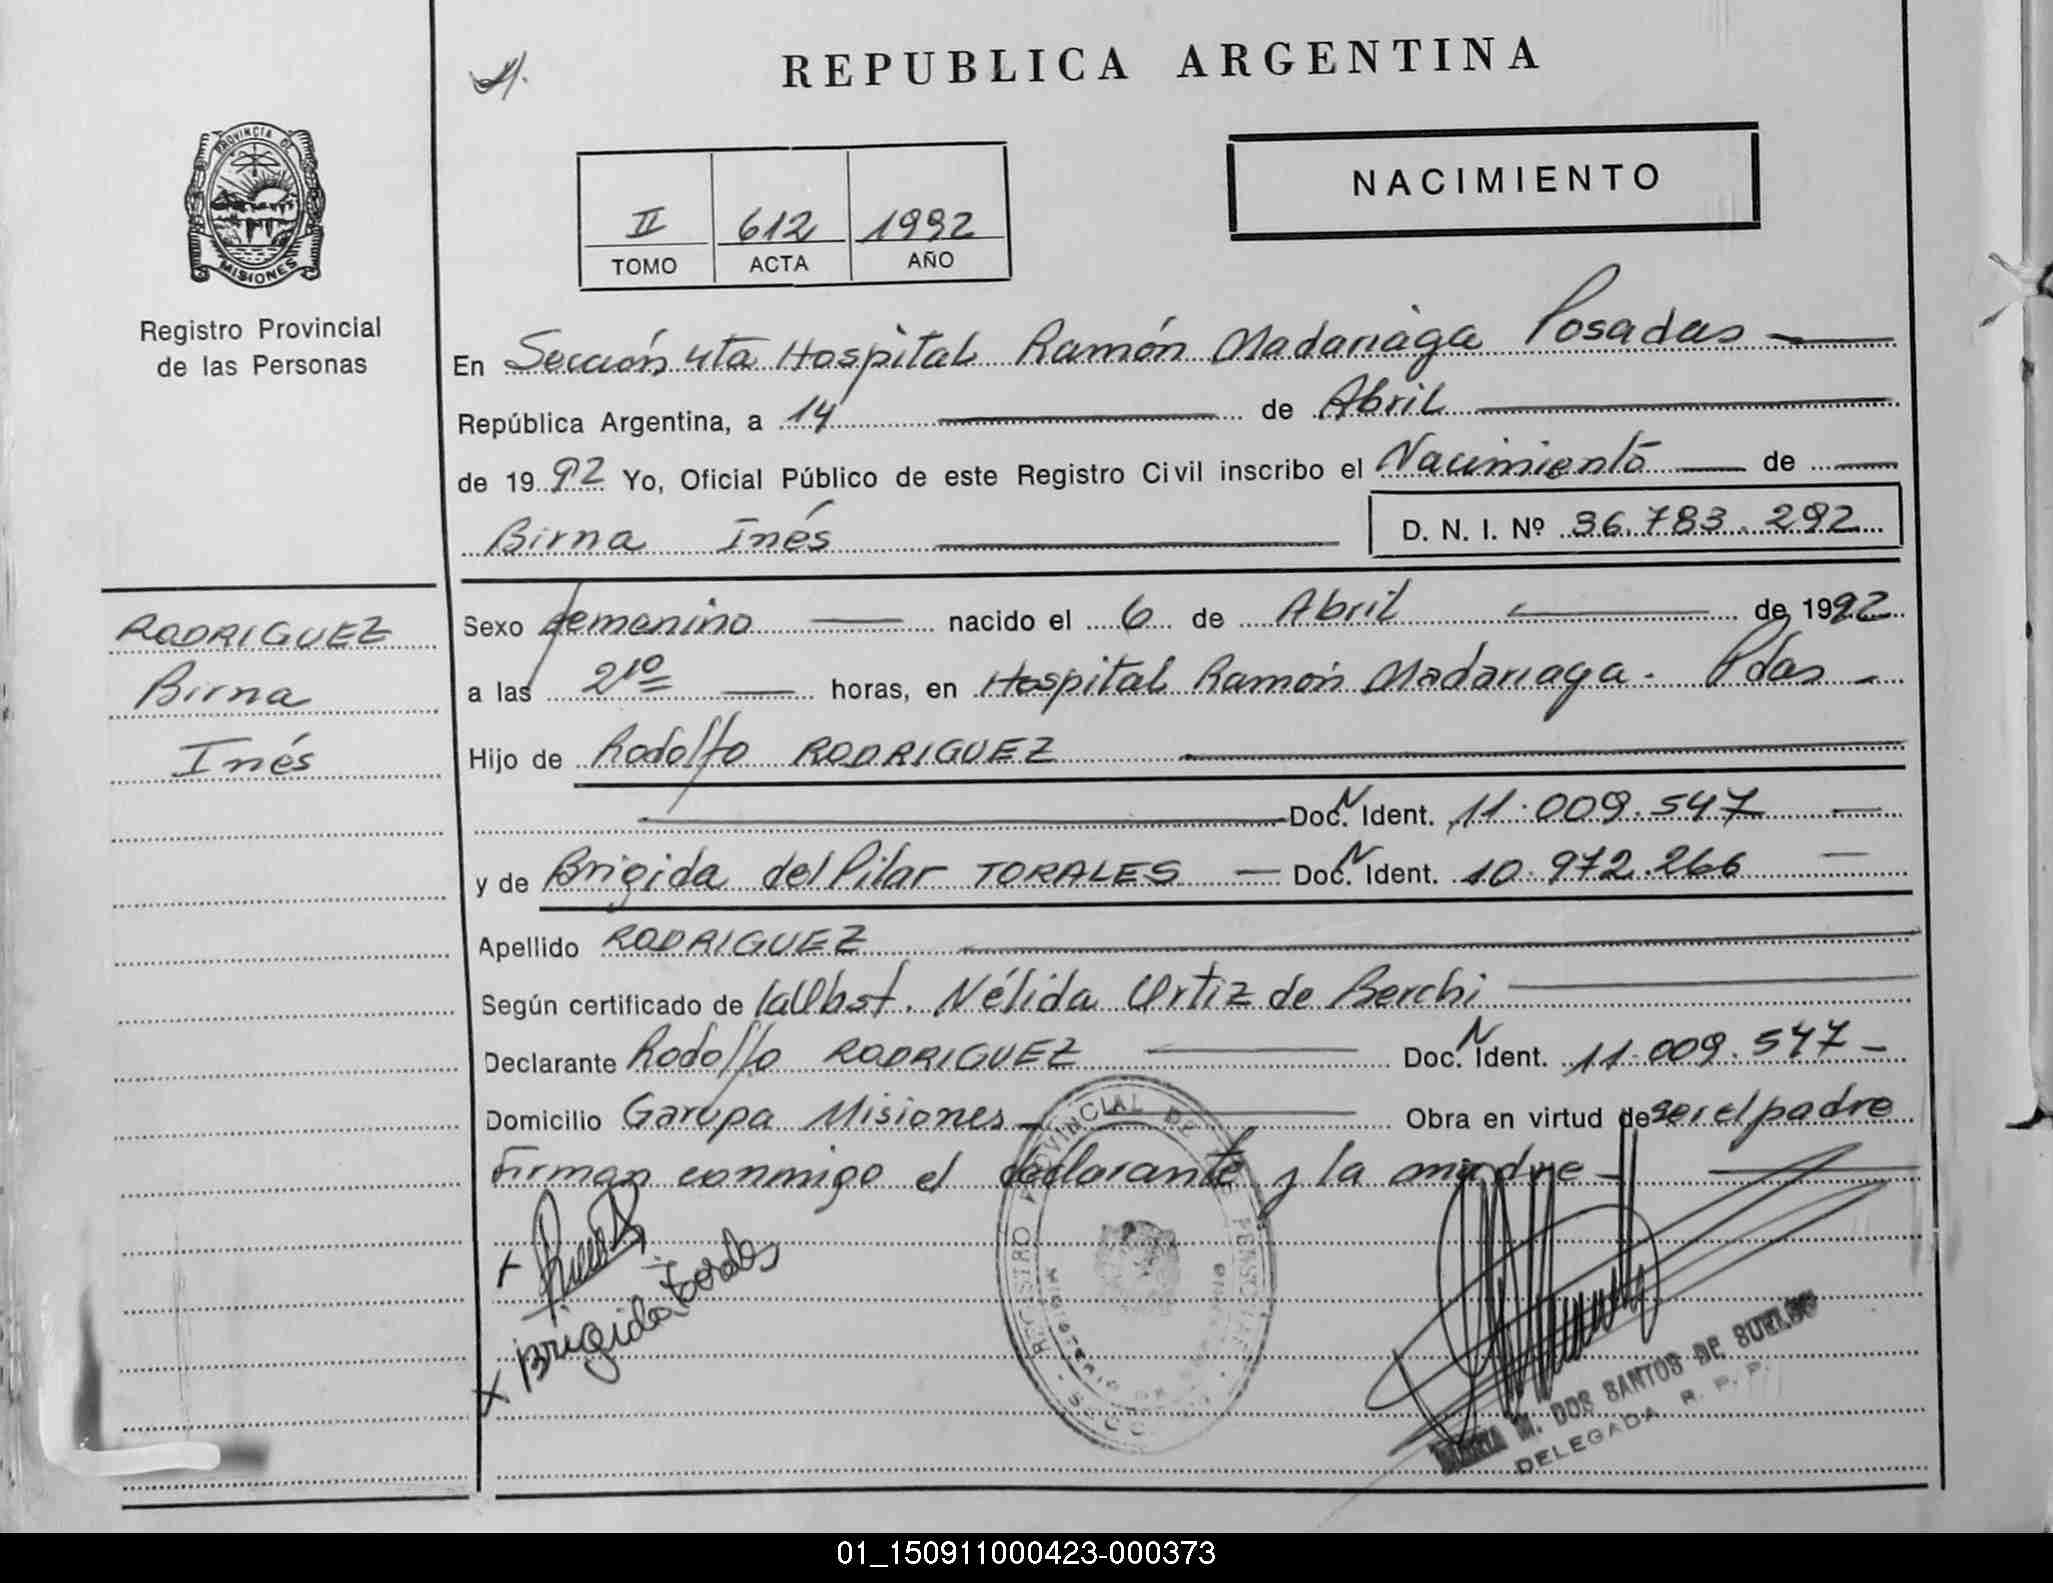 REPUBLICA ARGENTINA
PROVINCIA DE
MISIONES
Registro Provincial
de las Personas
II 612 1992
TOMO ACTA AÑO
NACIMIENTO
En Sección 4ta Hospital Ramón Madariaga Posadas
República Argentina, a 14 de Abril
de 1992 Yo, Oficial Público de este Registro Civil inscribo el Nacimiento de
Birna Inés D. N. I. Nº 36.783.292
RODRIGUEZ
Birna
Inés
Sexo femenino nacido el 6 de Abril de 1992
a las 2 10 horas, en Hospital Ramón Madariaga. Pdas
Hijo de Rodolfo RODRIGUEZ
Doc. N Ident. 11.009.547
y de Brigida del Pilar TORALES Doc. N Ident. 10.972.266
Apellido RODRIGUEZ
Según certificado de la Obst. Nélida Ortiz de Berchi
Declarante Rodolfo RODRIGUEZ Doc. N Ident. 11.009.547
Domicilio Garupa Misiones Obra en virtud de ser el padre
Firman conmigo el declarante y la madre
Brigida Torales
REGISTRO PROVINCIAL DE LAS PERSONAS
MARIA M. DOS SANTOS DE SUELDO
DELEGADA R. P. P.
01_150911000423-000373